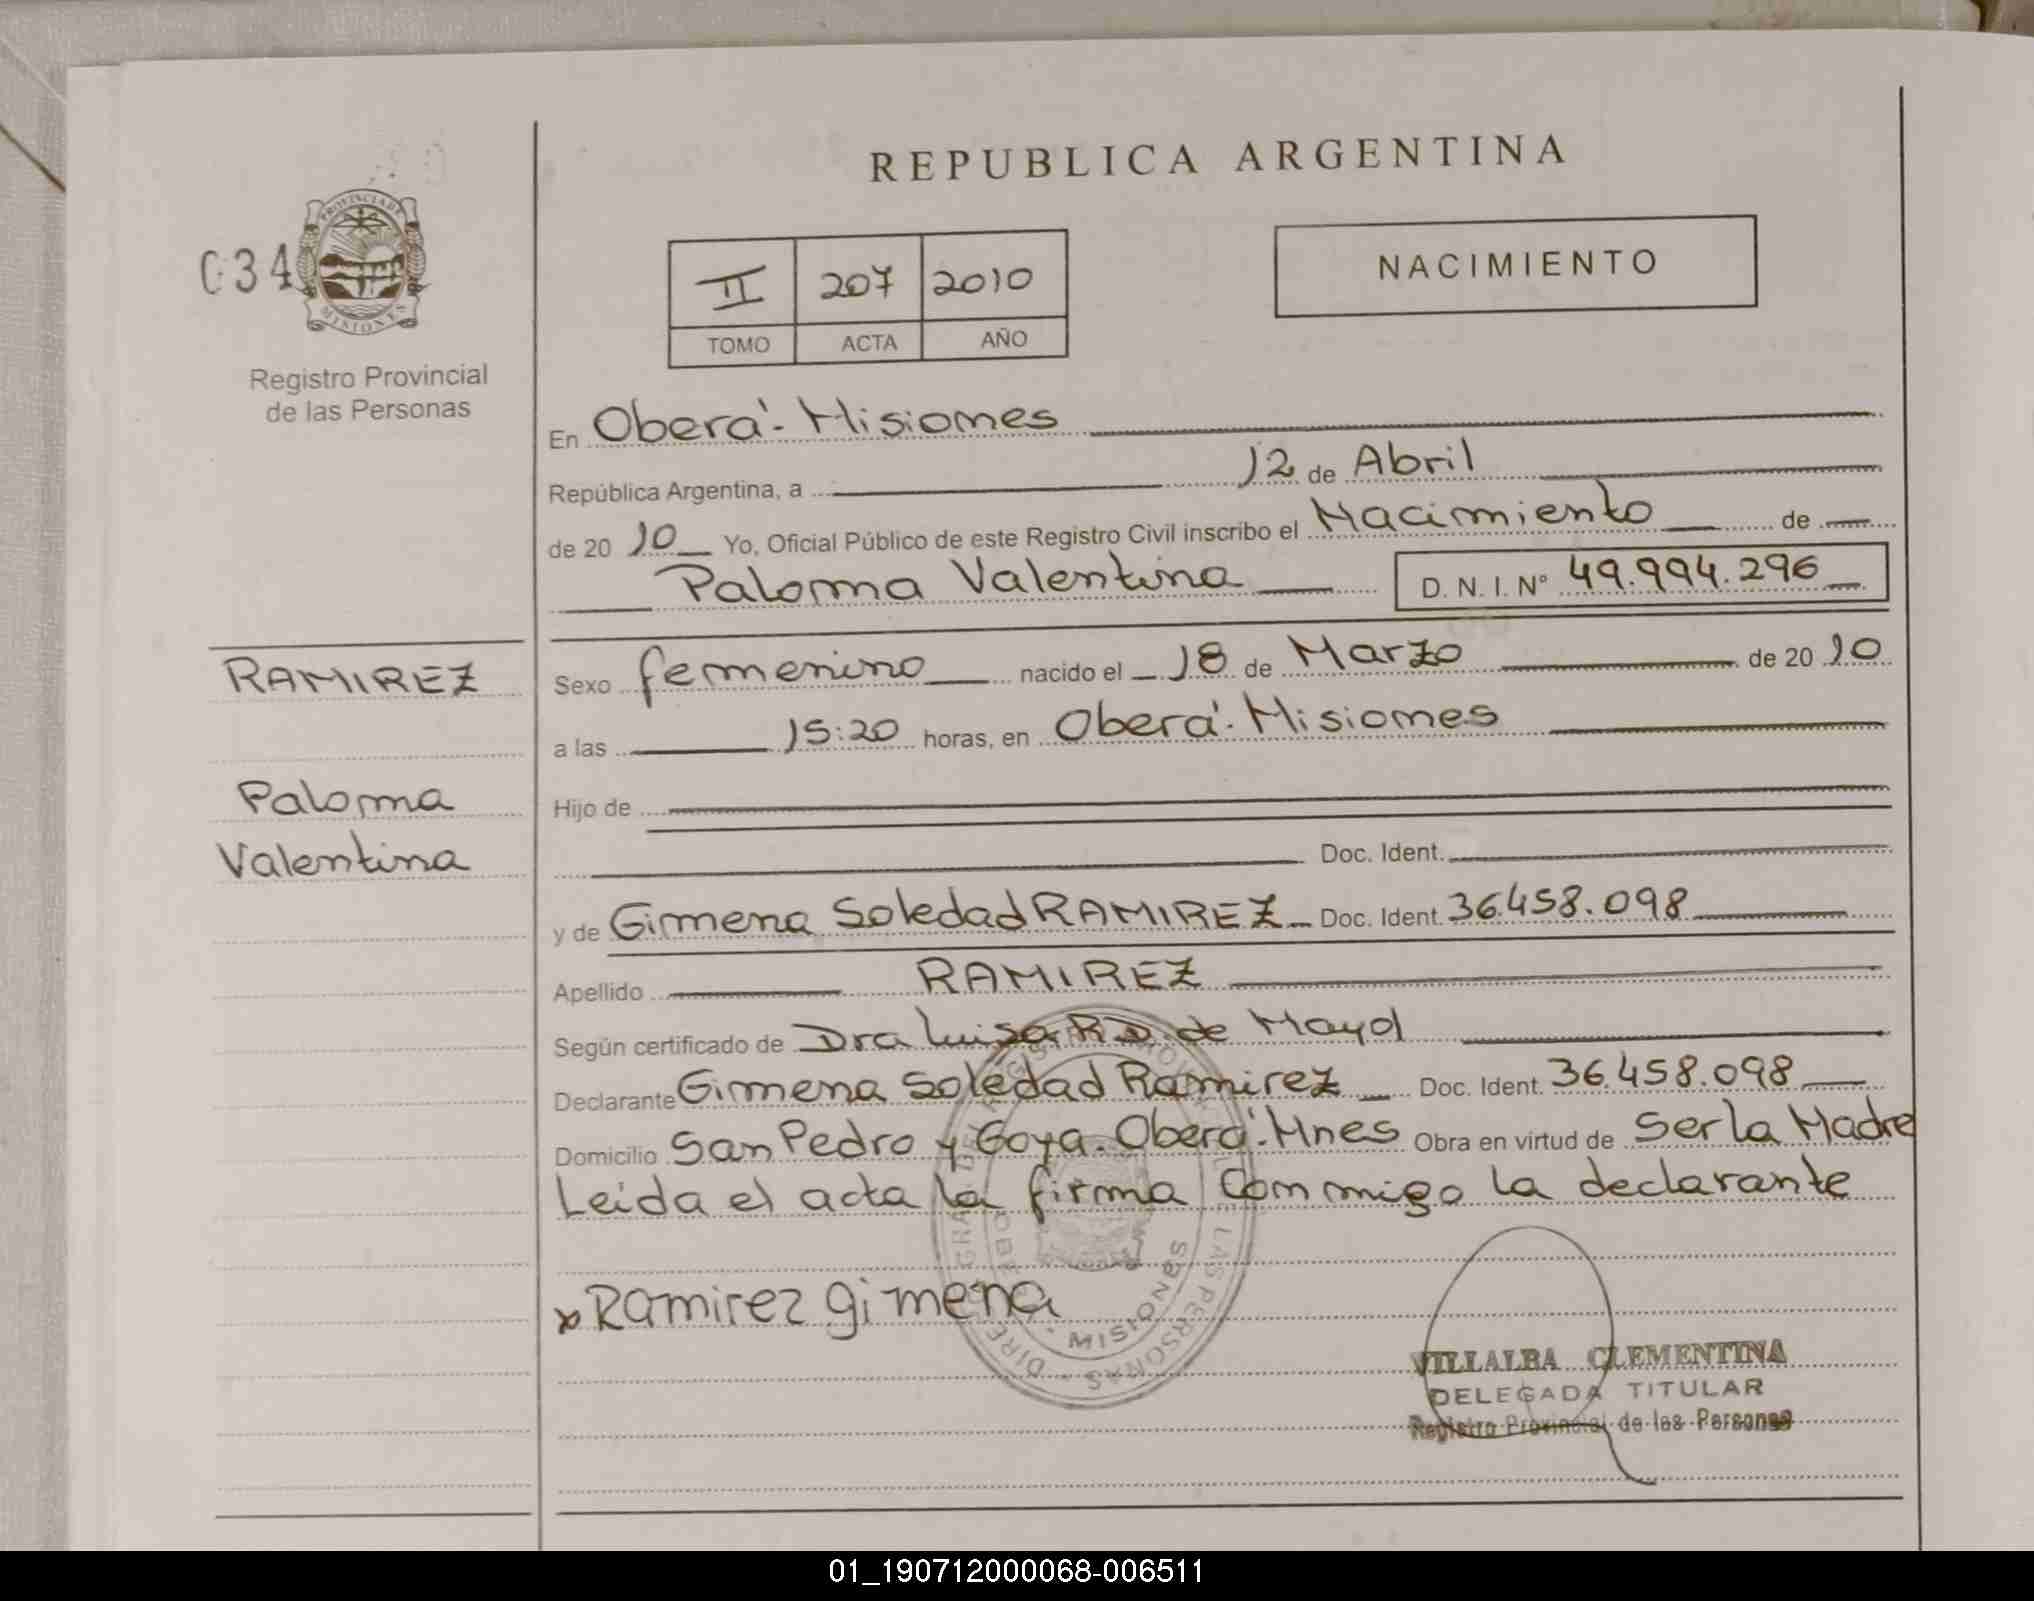 REPUBLICA ARGENTINA
034
PROVINCIA DE
MISIONES
Registro Provincial
de las Personas
II 207 2010
TOMO ACTA AÑO
NACIMIENTO
En Oberá - Misiones
República Argentina, a 12 de Abril
de 20 10 Yo, Oficial Público de este Registro Civil inscribo el Nacimiento de
Paloma Valentina D. N. I. Nº 49.994.296
RAMIREZ
Paloma
Valentina
Sexo femenino nacido el 18 de Marzo de 20 10
a las 15:20 horas, en Oberá - Misiones
Hijo de
Doc. Ident.
y de Gimena Soledad RAMIREZ Doc. Ident. 36.458.098
Apellido RAMIREZ
Según certificado de Dra Luisa R D. de Mayol
Declarante Gimena Soledad Ramirez Doc. Ident. 36.458.098
Domicilio San Pedro y Goya. Oberá - Mnes Obra en virtud de Ser la Madre
Leida el acta la firma Conmigo la declarante
x Ramirez gimena
MISIONES
VILLALBA CLEMENTINA
DELEGADA TITULAR
Registro Provincial de las Personas
01_190712000068-006511